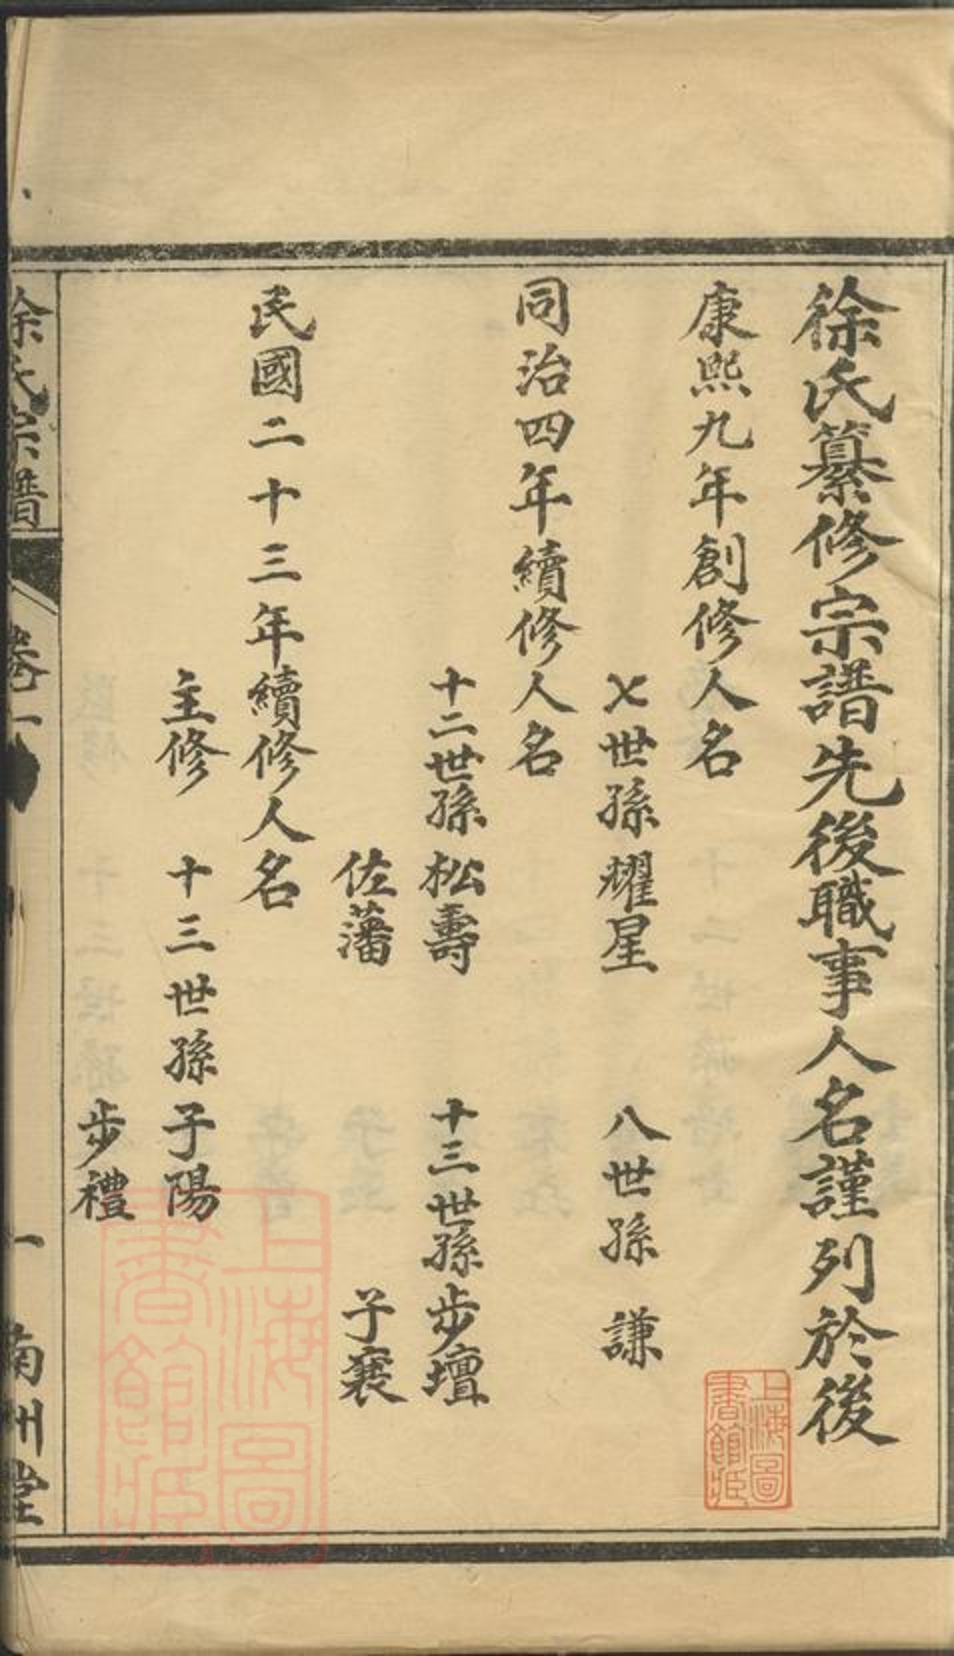 徐氏纂修宗譜先後職事人名謹列於後
康熙九年創修人名
七世孫 耀星 八世孫 謙
同治四年續修人名
十二世孫 松壽 十三世孫 步壇
佐藩 子襄
民國二十三年續修人名
主修 十三世孫 子陽
步禮
徐氏宗譜 卷一 一 南州堂
上海圖書館藏
上海圖書館藏